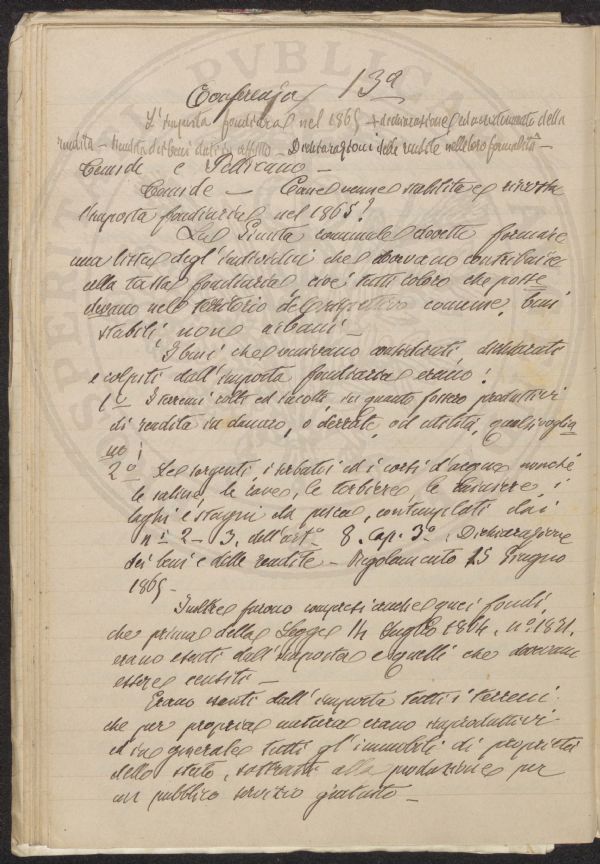 Conferenza 13ª
L'imposta fondiaria nel 1865 - dichiarazione ed accertamento della
rendita - Rendita di beni dati in affitto - Dichiarazioni delle rendite nelle loro formalità -
Censide e Pellicano -
Censide - Come venne stabilita e riscossa
l'imposta fondiaria nel 1865?
La Giunta comunale dovette formare
una lista degl'individui che dovevano contribuire
alla tassa fondiaria, cioè tutti coloro che posse
devano nel territorio del rispettivo comune, beni
stabili non urbani -
I beni che venivano considerati, dichiarati
e colpiti dall'imposta fondiaria erano:
1º I terreni colti ed incolti in quanto fossero produttivi
di rendita in denaro, o derrate, od utilità, qualsivoglia
no;
2º Le sorgenti i serbatoi ed i corsi d'acqua nonché
le saline, le cave, le torbiere, le miniere i
laghi e stagni da pesca, contemplati dai
nⁱ 2 - 3. dell'artº 8. Cap. 3º. Dichiarazione
dei beni e delle rendite - Regolamento 25 Giugno
1865 -
Inoltre furono compresi anche quei fondi,
che prima della Legge 14 Luglio 1864. nº 1831.
erano esenti dall'imposta e quelli che dovevano
essere censiti -
Erano esenti dall'imposta tutti i terreni
che per propria natura erano improduttivi
ed in generale tutti gl'immobili di proprietà
dello stato, sottratti alla produzione per
un pubblico servizio gratuito -